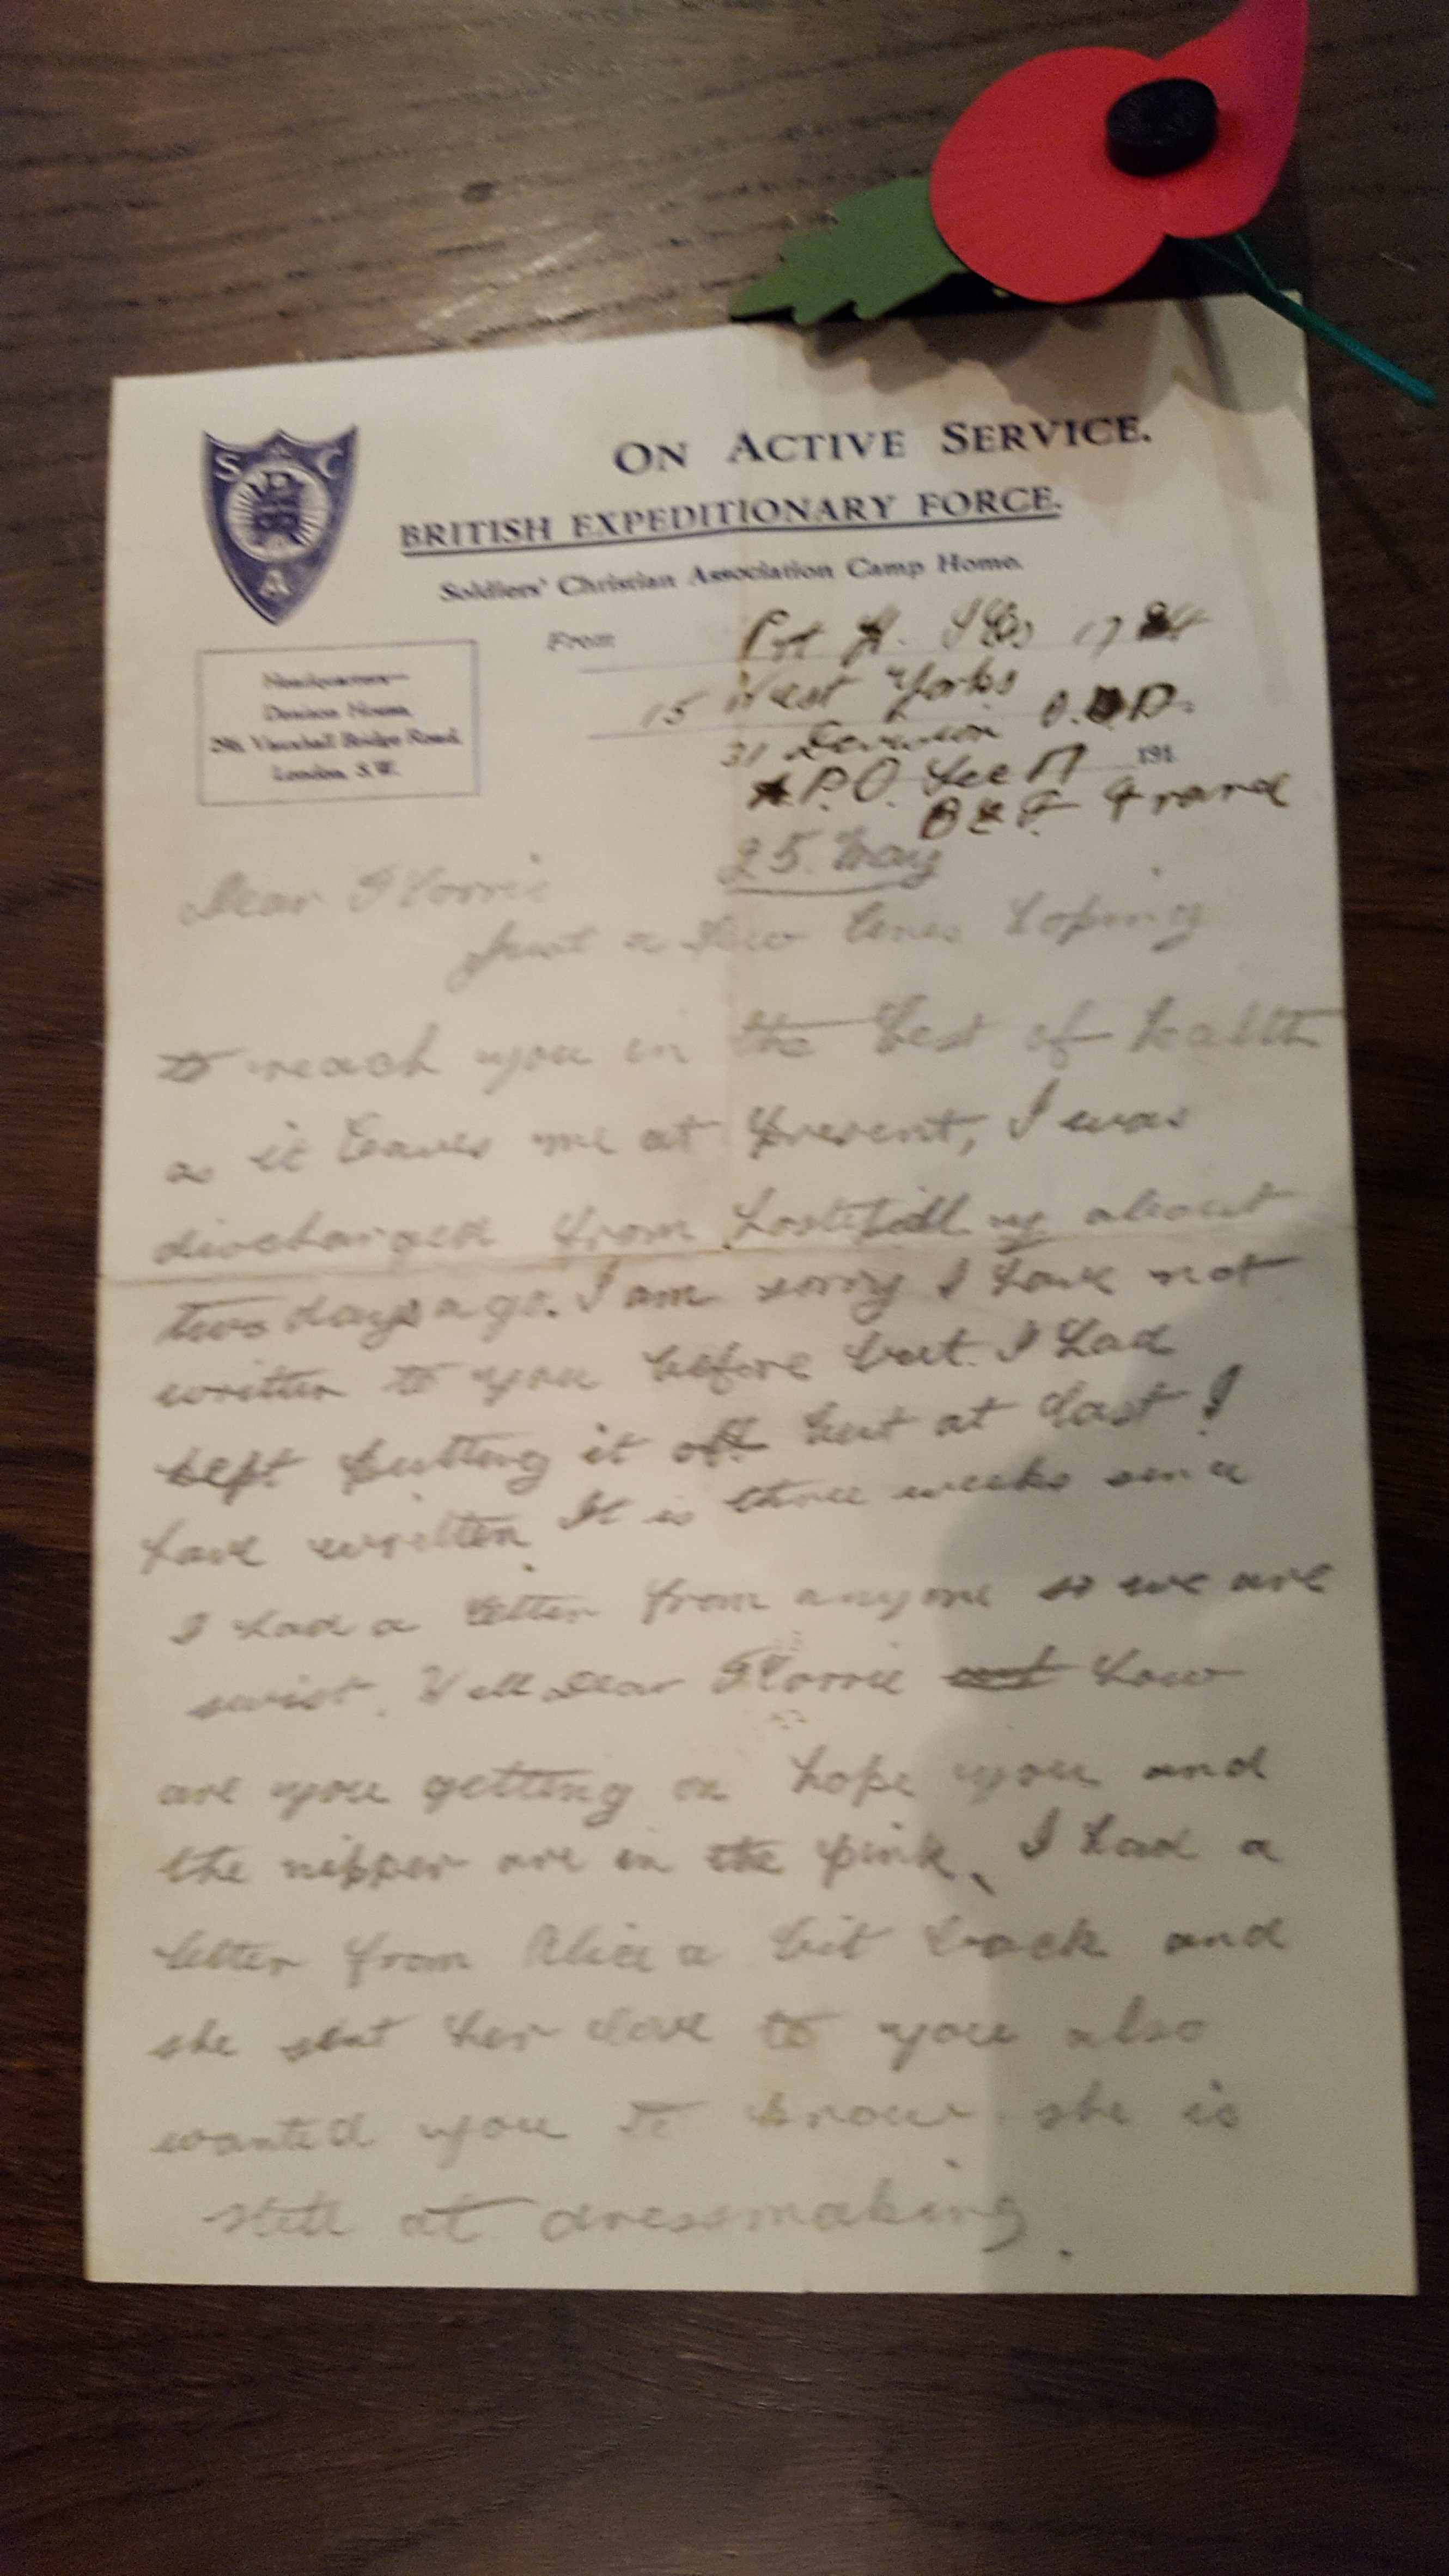 S C
A
ON ACTIVE SERVICE.
BRITISH EXPEDITIONARY FORCE.
Soldiers' Christian Association Camp Home.
From
Headquarters—
Denison House,
296, Vauxhall Bridge Road,
London, S.W.
Pvt H. 17
15 West Yorks
31 B.D.
191
A.P.O. Sec 17
B E F France
25. May
Dear Florrie
Just a few lines hoping
to reach you in the best of health
as it leaves me at present, I was
discharged from about
two days ago. I am sorry I have not
written to you before but I had
kept putting it off but at last I
have written. It is three weeks since
I had a letter from anyone so we are
. Well Dear Florrie how
are you getting on hope you and
the nipper are in the pink, I had a
letter from Alice a bit back and
she sent her love to you also
wanted you to know she is
still at dressmaking.